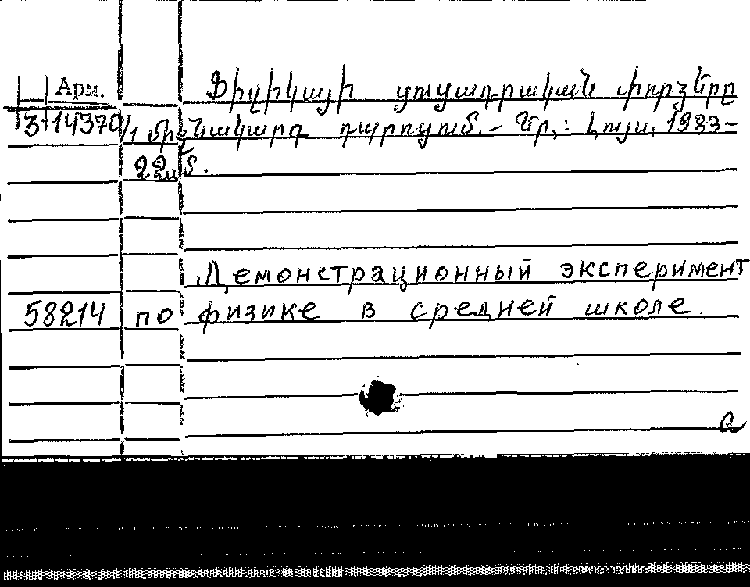 Арм. Ֆիզիկայի ցուցադրական փորձերը
3 14370/1 միջնակարգ դպրոցում. – Եր.: Լույս, 1983 –
22սմ.
Демонстрационный эксперимент
58214 по физике в средней школе.